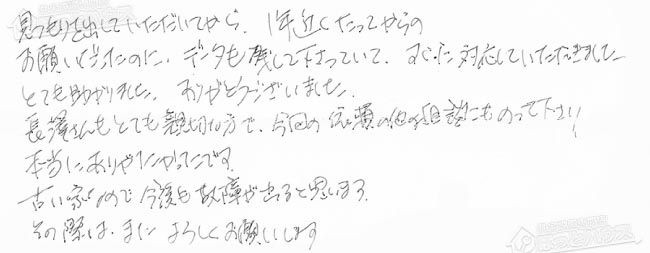 見つもりを出していただいてから、1年近くたってからの
お願いだったのに、データも残して下さっていて、すぐに対応していただきました
とても助かりました。ありがとうございました。
長澤さんもとても親切な方で、今回の依頼の他の相談にものって下さり
本当にありがたかったです。
古い家なので今後も故障が出ると思います。
その際は、また よろしくお願いします